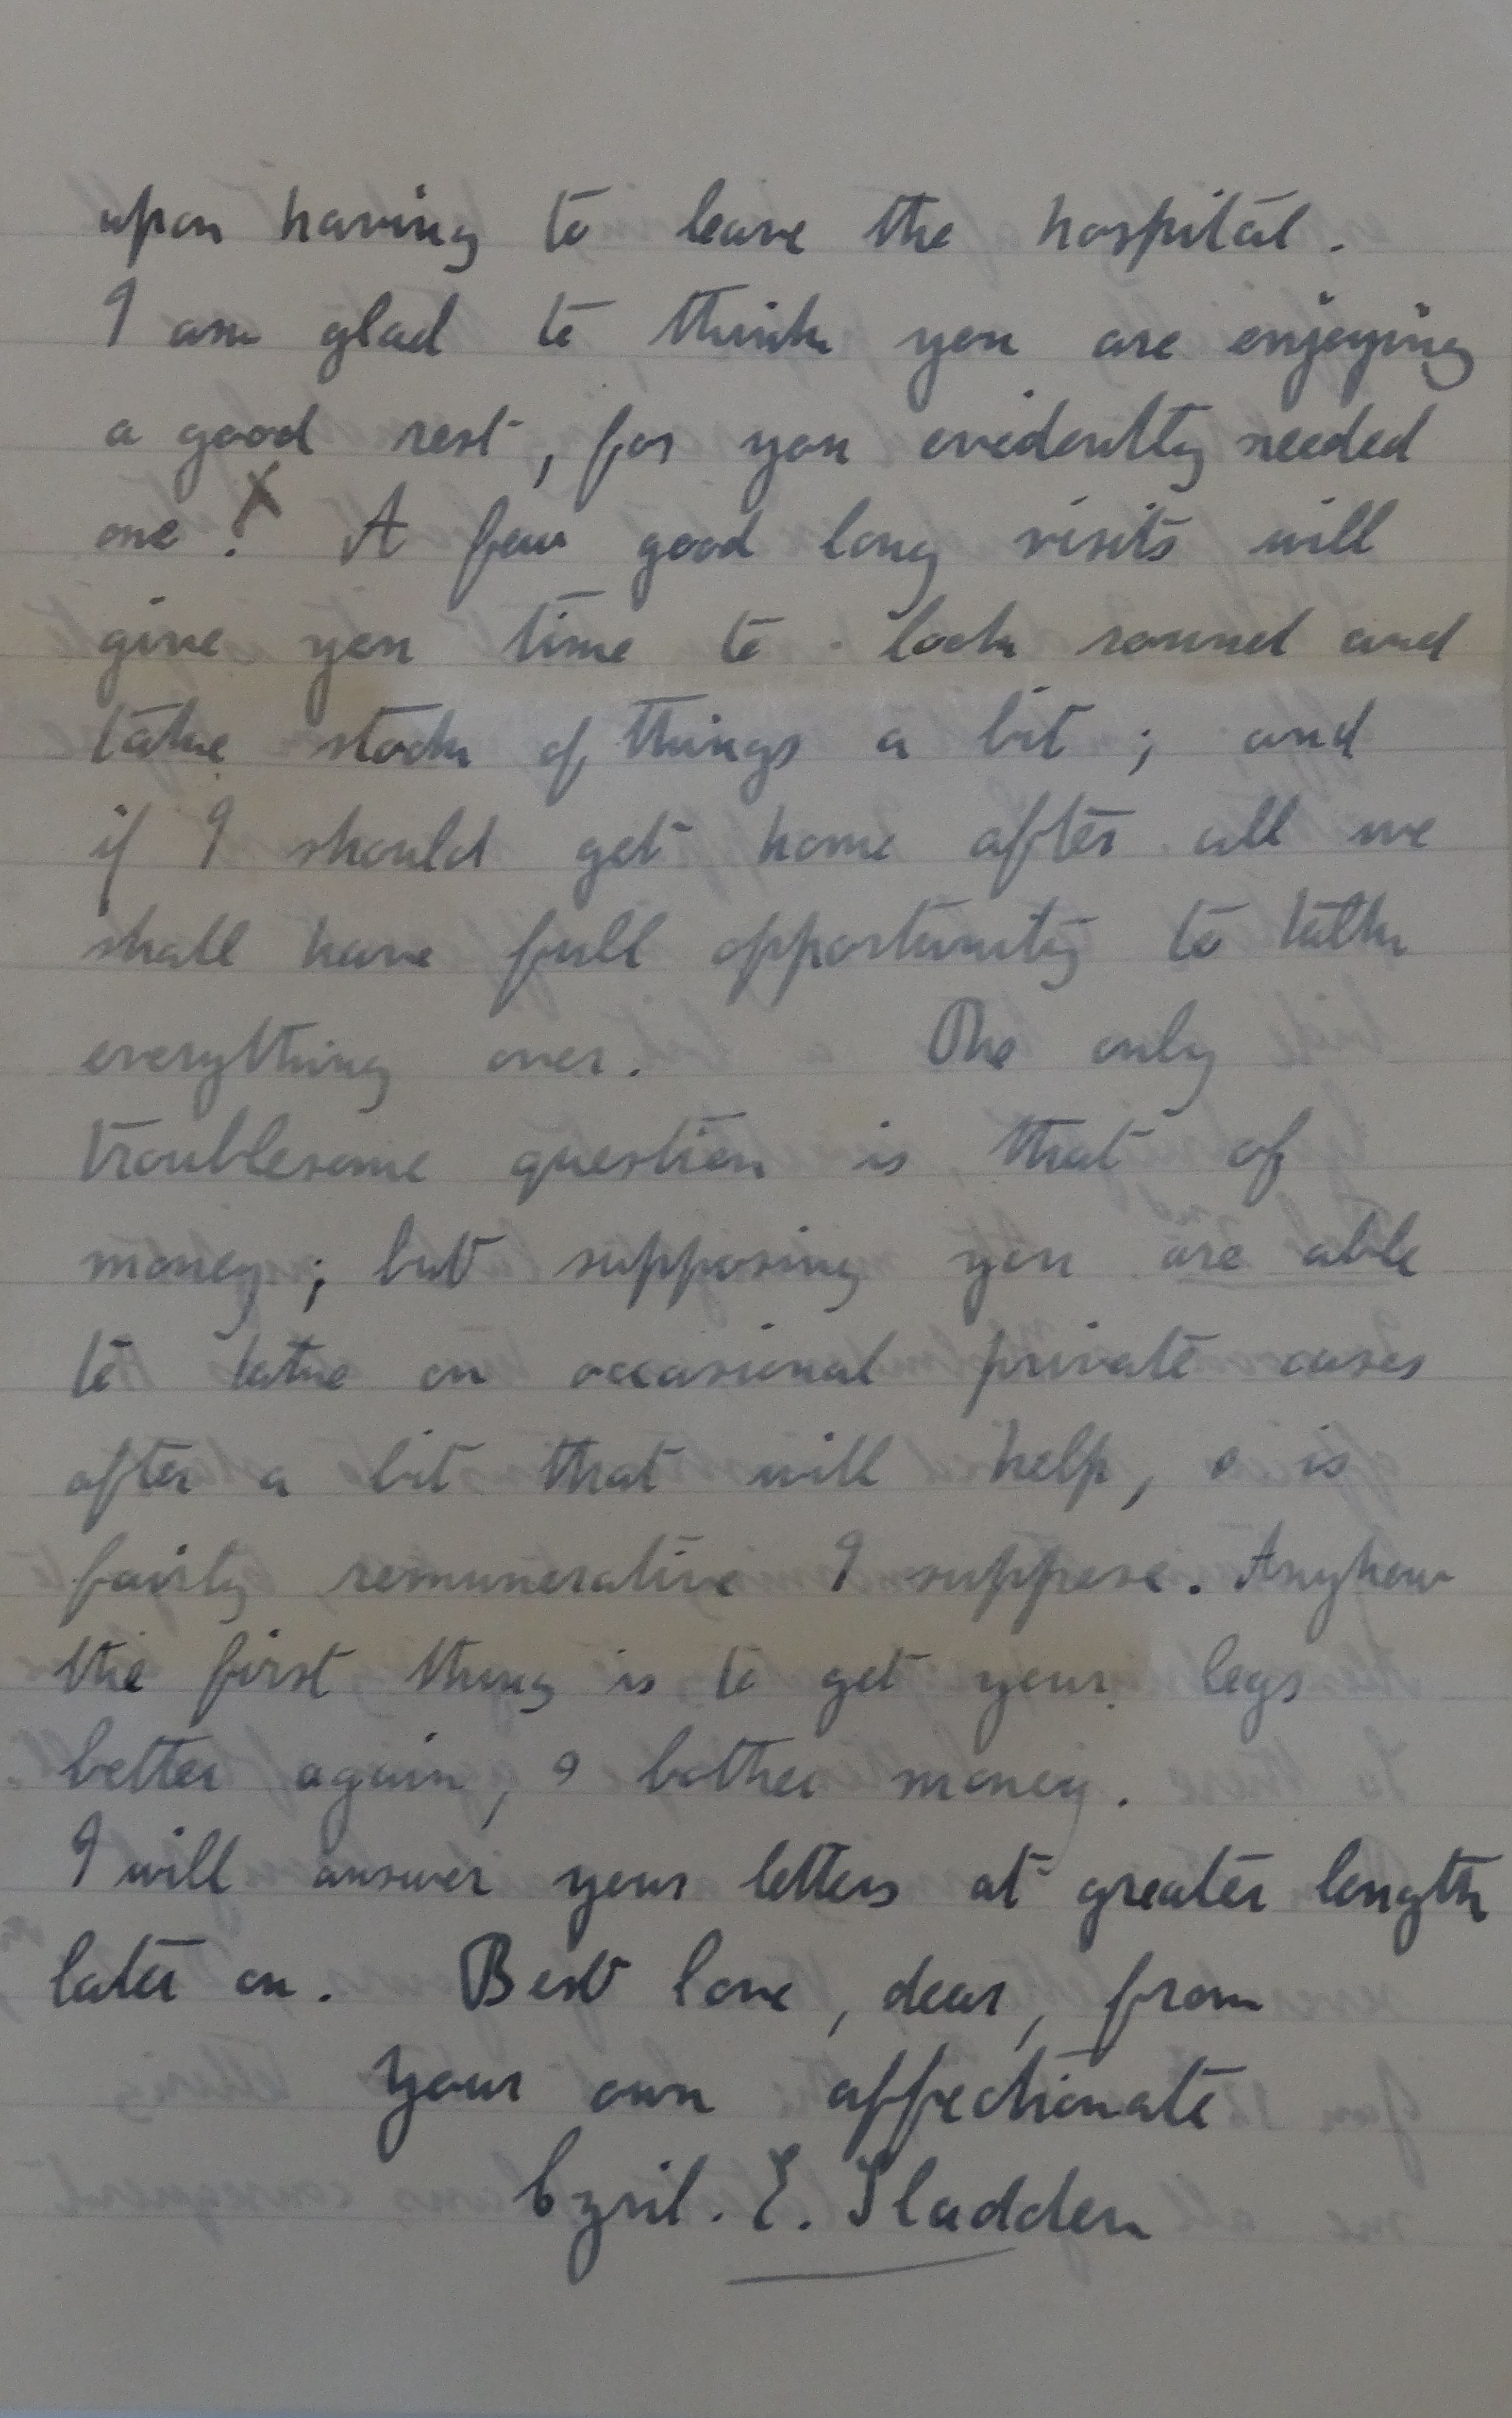 upon having to leave the hospital.
I am glad to think you are enjoying
a good rest, for you evidently needed
one. X A few good long visits will
give you time to look round and
take stock of things a bit; and
if I should get home after all we
shall have full opportunity to talk
everything over. The only
troublesome question is that of
money; but supposing you are able
to take on occasional private cases
after a bit that will help, & is
fairly remunerative I suppose. Anyhow
the first thing is to get your legs
better again, & bother money.
I will answer your letters at greater length
later on. Best love, dear, from
your own affectionate
Cyril. E. Sladden